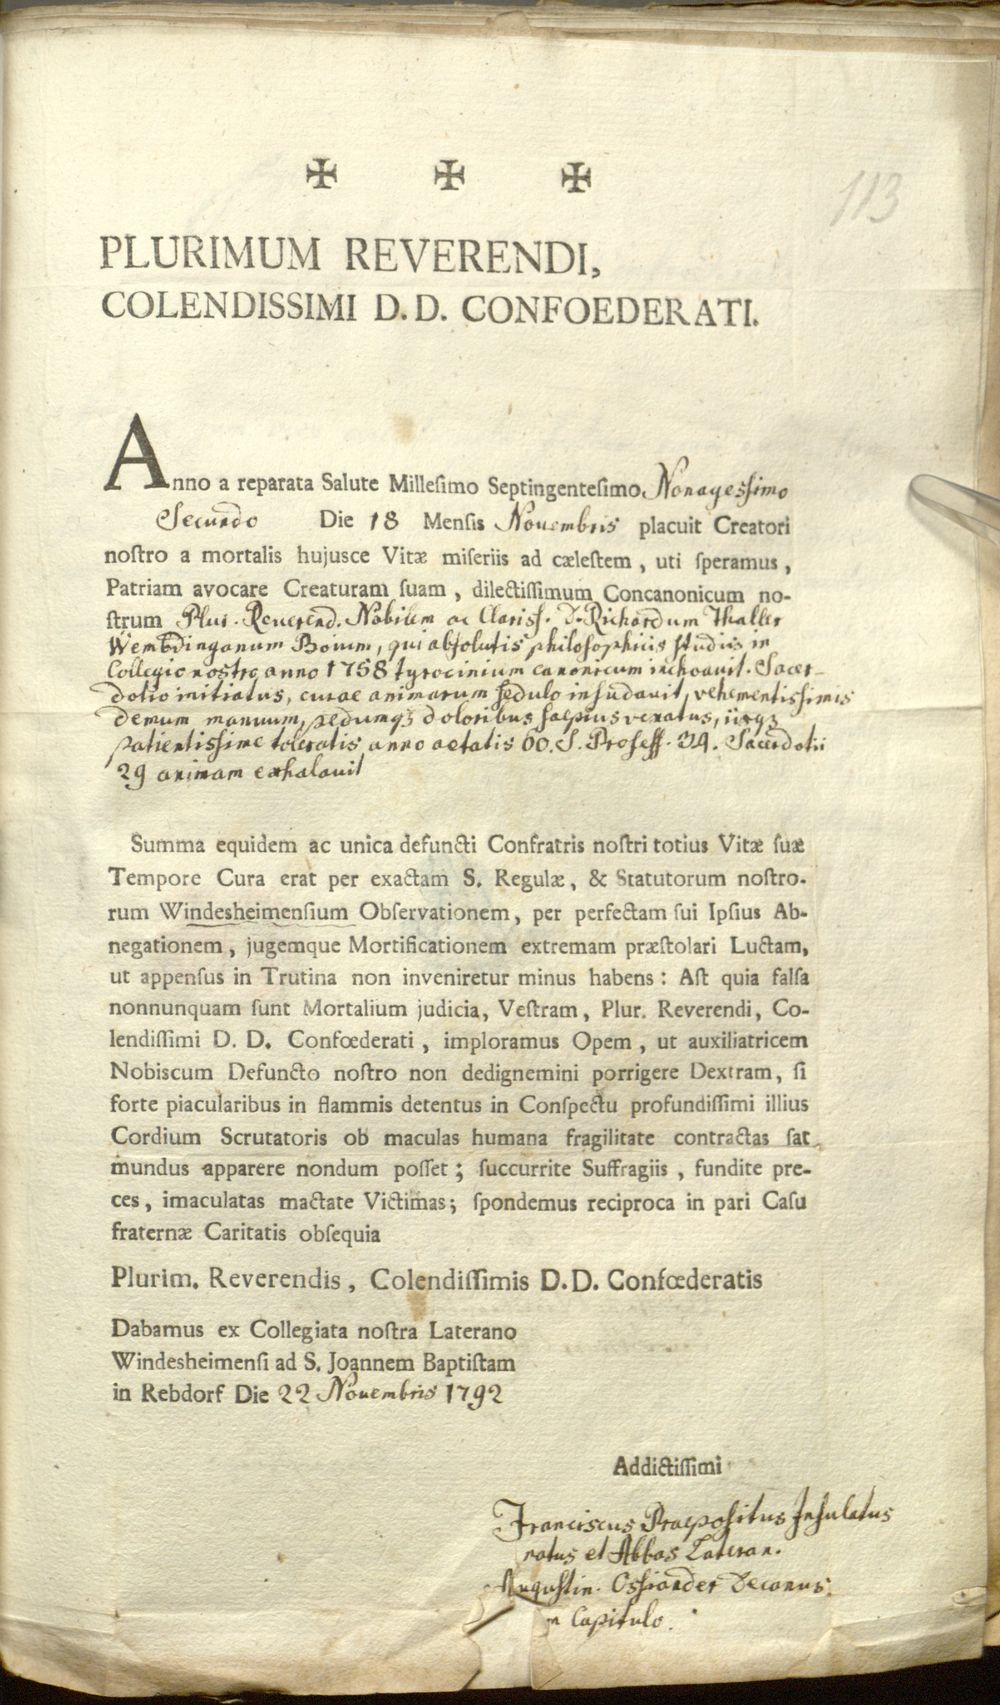 113
PLURIMUM REVERENDI,
COLENDISSIMI D.D. CONFOEDERATI.
Anno a reparata Salute Millesimo Septingentesimo Nonagessimo
Secundo Die 18 Mensis Novembris placuit Creatori
nostro a mortalis hujusce Vitæ miseriis ad cælestem, uti speramus,
Patriam avocare Creaturam suam, dilectissimum Concanonicum no-
strum Plur. Reverend. Nobilem ac Clariss. D. Richardum Thaller
Wembdinganum Boium, qui absolutis philosophicis studiis in
Collegio nostro anno 1758 tyrocinium canonicum inchoavit. Sacer-
dotio initiatus, curae animarum sedulo insudavit, vehementissimis
demum manuum, pedumqз doloribus saepius vexatus, iisqз
patientissime toleratis anno aetatis 60. S. Profess. 34. Sacerdotii
29 animam exhalavit
Summa equidem ac unica defuncti Confratris nostri totius Vitæ suæ
Tempore Cura erat per exactam S. Regulæ, & Statutorum nostro-
rum Windesheimensium Observationem, per perfectam sui Ipsius Ab-
negationem, jugemque Mortificationem extremam præstolari Luctam,
ut appensus in Trutina non inveniretur minus habens: Ast quia falsa
nonnunquam sunt Mortalium judicia, Vestram, Plur. Reverendi, Co-
lendissimi D. D. Confœderati, imploramus Opem, ut auxiliatricem
Nobiscum Defuncto nostro non dedignemini porrigere Dextram, si
forte piacularibus in flammis detentus in Conspectu profundissimi illius
Cordium Scrutatoris ob maculas humana fragilitate contractas sat
mundus apparere nondum posset; succurrite Suffragiis, fundite pre-
ces, imaculatas mactate Victimas; spondemus reciproca in pari Casu
fraternæ Caritatis obsequia
Plurim. Reverendis, Colendissimis D.D. Confœderatis
Dabamus ex Collegiata nostra Laterano
Windesheimensi ad S. Joannem Baptistam
in Rebdorf Die 22 Novembris 1792
Addictissimi
Franciscus Praepositus Infulatus
natus et Abbas Lateran.
Augustin. Ossiander Decanus
Capitulo.